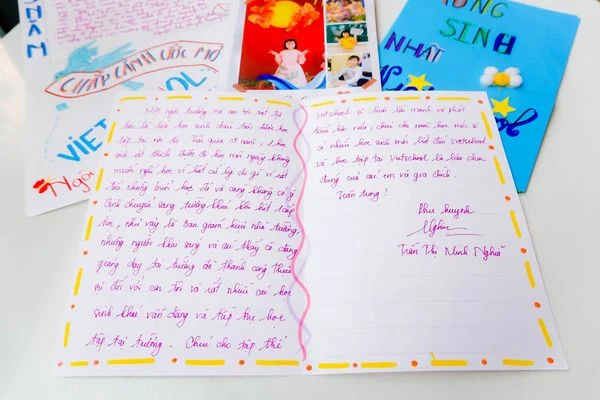 NHÂN
CHẮP CÁNH ƯỚC MƠ
VIET
OL
Ngôi
MỪNG
SINH
NHẬT
ol
Một ngôi trường mà con tôi rất tự
hào là luôn học sinh đầu tiên được học
tập tại nơi đó. Trải qua 05 năm, 1 học
sinh rất thích được đi học mỗi ngày không
muốn nghỉ học vì bất cứ lý do gì vì rất
tiếc những buổi học đó và càng không có ý
định chuyển sang trường khác khi hết cấp
học, như vậy là Ban giám hiệu nhà trường,
những người khai sáng và các thầy cô đang
giảng dạy tại trường đã thành công thực
sự đối với con tôi và rất nhiều các học
sinh khác vẫn đang và tiếp tục học
tập tại trường. Chúc cho tập thể
Vietschool sẽ luôn lớn mạnh và phát
triển hơn nữa, chúc cho năm học mới sẽ
có nhiều học sinh mới biết đến Vietschool
và học tập tại Vietschool là lựa chọn
đúng của các em và gia đình.
Trân trọng!
Phụ huynh
Nghĩa
Trần Thị Minh Nghĩa